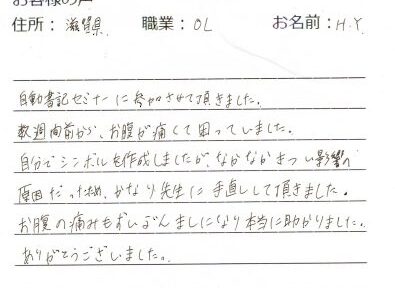 お客様の声
住所： 滋賀県　職業： OL　お名前：H.Y.
自動書記セミナーに参加させて頂きました。
数週間前から、お腹が痛くて困っていました。
自分でシンボルを作成しましたが、なかなかきつい影響が
原因だった為、かなり先生に手直しして頂きました。
お腹の痛みもずいぶんましになり本当に助かりました。
ありがとうございました。